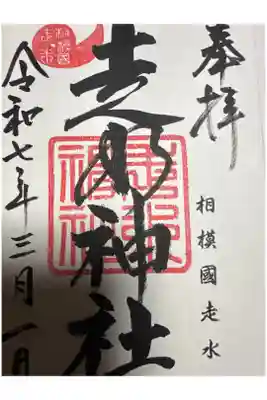 奉拝
相模國走水
走水神社
令和七年三月一日